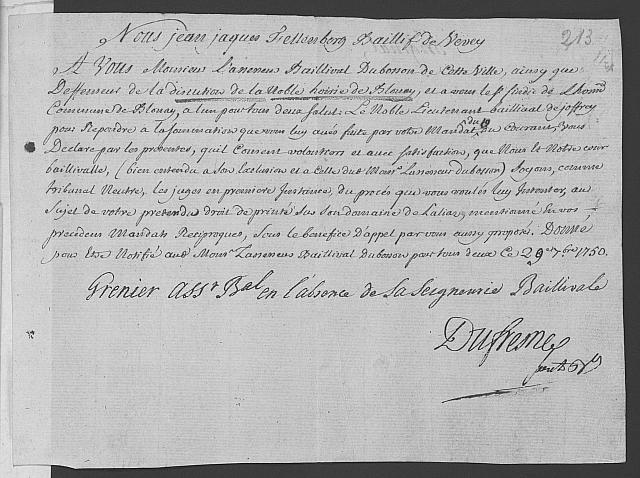 213
Nous jean jaques Fellenberg Baillif de Vevey
A Vous Monsieur L'assesseur Baillival Dubosson de Cette Ville, ainsy que
Deffenseur de la discution de la Noble hoirie de Blonay, et a vous le Sr Sindic de L'hon
Commune de Blonay, a l'un pour tous deux Salut. Le Noble Lieutenant baillival de joffrey
pour Repondre a la Sommation que vous luy avés faite par votre Mandat du 19 du Courant, vous
Declare par les presentes, quil Consent volontiers et avec Satisfaction, que Nous & Notre cour
baillivalle, (bien entendu a Son Exclusion et a Celle dudt Monsr Lassesseur dubosson) Soyons, comme
tribunal Neutre, les juges en premiere Instance, du procés que vous voulés luy Intenter, au
Sujet de votre pretendu droit de Sus Son domaine de mentionné En vos
precedens Mandats Reciproques, Sous le benefice d'appel par vous aussy proposé. Donné
pour Etre Notifié audt Monsr Lassesseur Baillival Dubosson pour tous deux Ce 29e 7bre 1750.
Grenier assr Bal en l'absence de Sa Seigneurie Baillivale
Dufresne